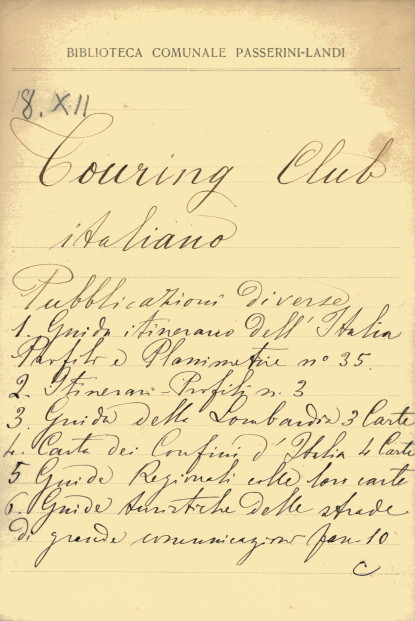 BIBLIOTECA COMUNALE PASSERINI-LANDI
8. XII
Touring Club
italiano
Pubblicazioni diverse
1. Guida itinerario dell' Italia
Profili e Planimetrie n° 35.
2. Itinerari - Profili n. 3
3. Guida della Lombardia 3 Carte
4. Carta dei Confini d' Italia 4 Carte
5 Guide Regionali colle loro carte
6. Guide turistiche delle strade
di grande comunicazione fas. 10
C